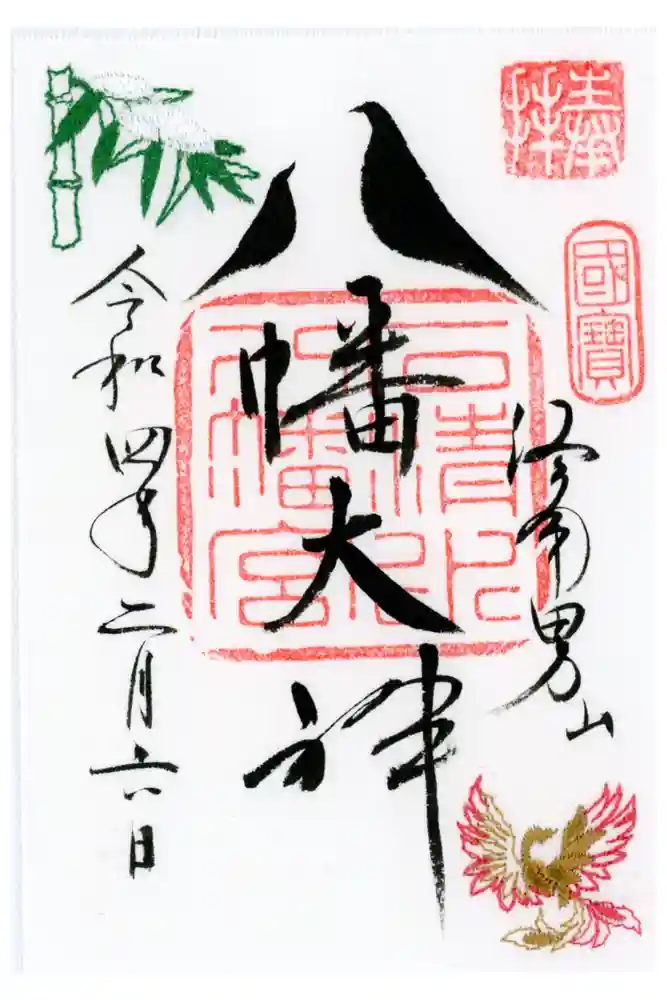 奉拝
國寶
洛南男山
八幡大神
石清水
八幡宮
令和四年二月六日